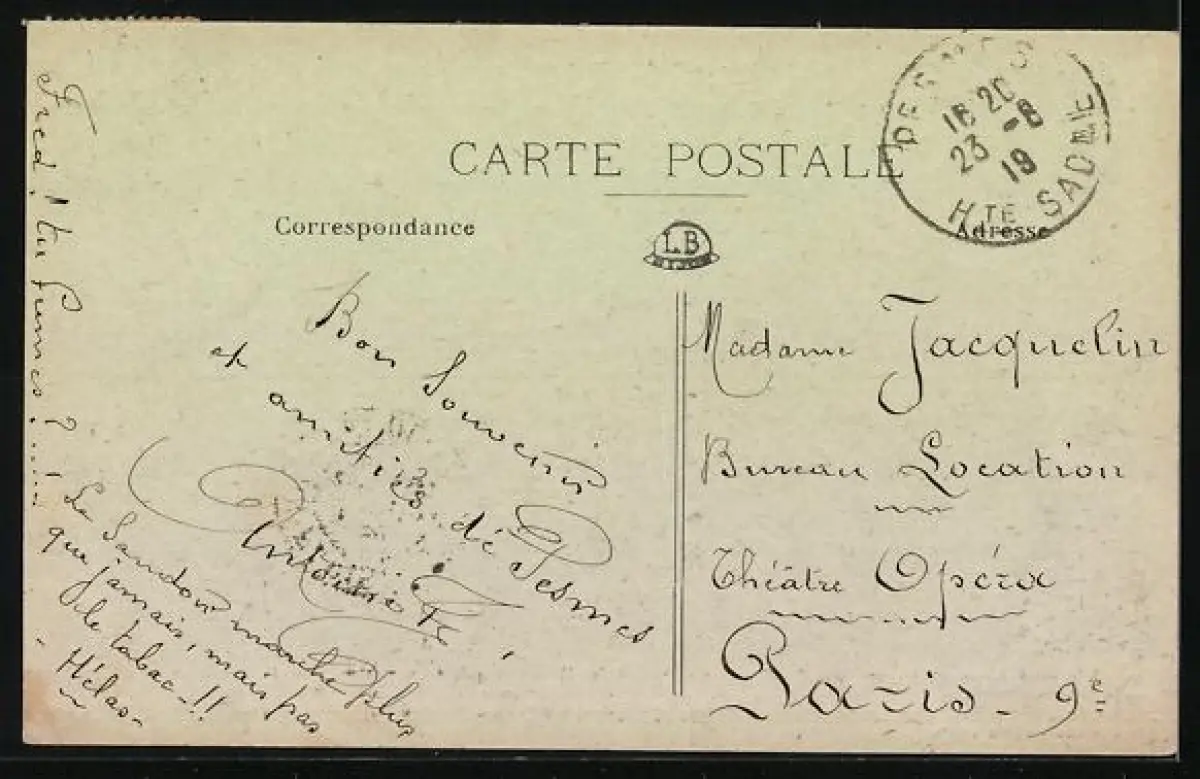 CARTE POSTALE
Correspondance
Adresse
LB
PESMES
16 20
23 -8
19
HTE SAONE
Bon Souvenir
et amitiés de Pesmes
Antoine
Madame Jacquelin
Bureau Location
Théâtre Opéra
Paris - 9e
Fred ! tu fumes ? ...!!!
Le Sandow marche plus
que jamais, mais pas
le tabac - !!
- Hélas -